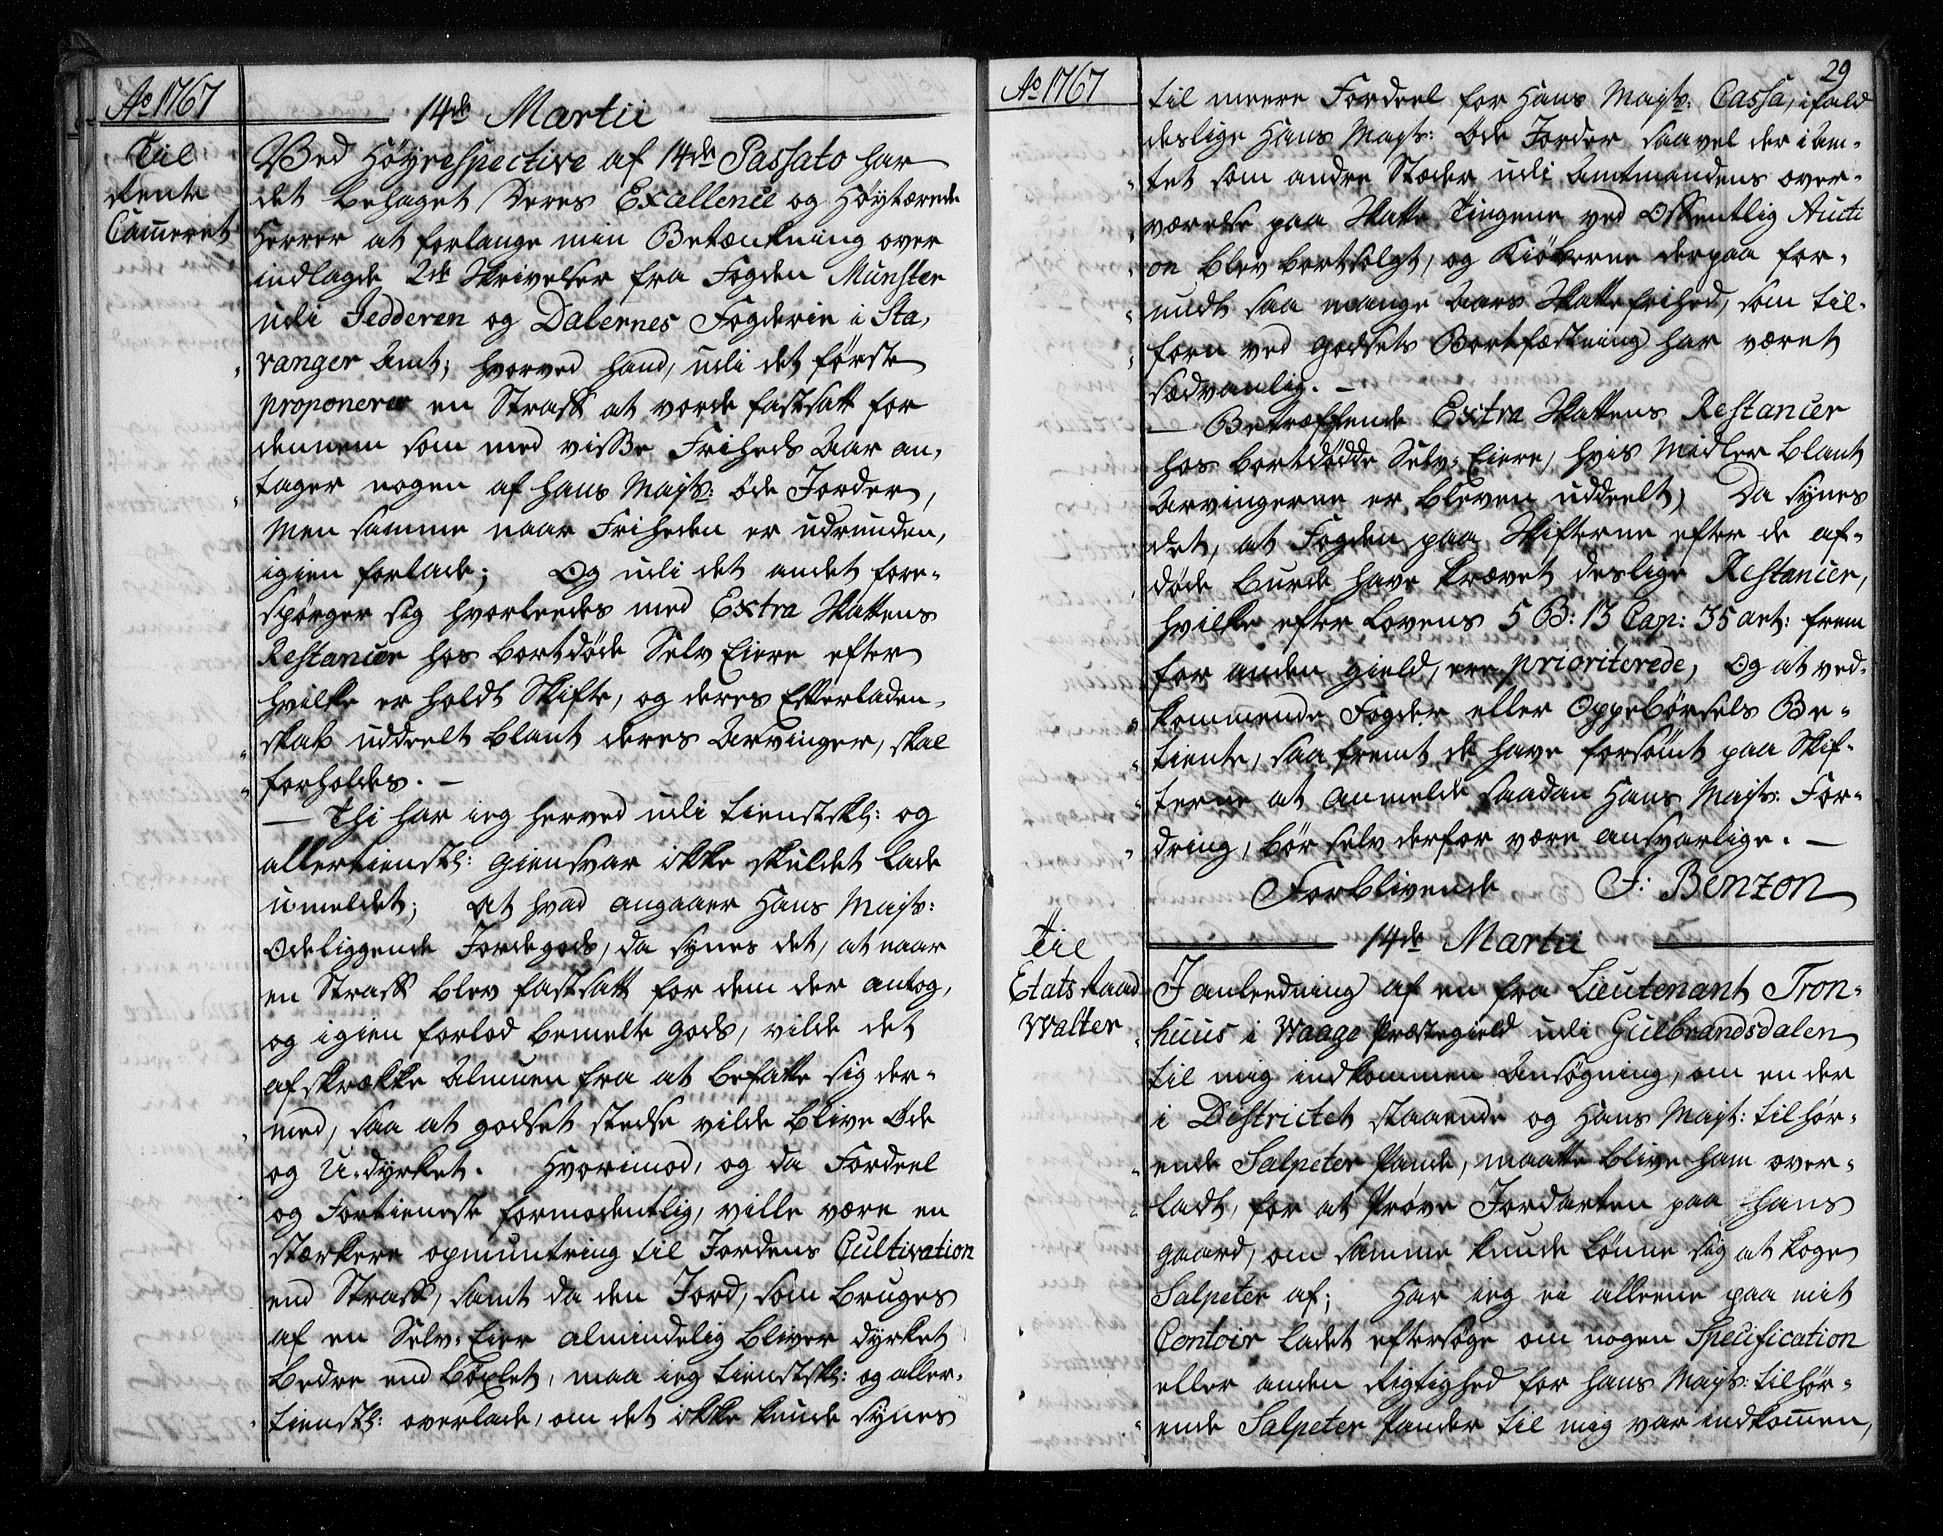 Ao 1767
14de Martii
Til
Rente
Cam̅eret
Ved Høyrespective af 14de Passato har
det behaget Deres Excellence og Høytærede
Herrer at forlange min Betænkning over
indlagde 2de Skrivelser fra Fogden Munster
udi Jedderen og Dalernes Fogderie i Sta-
vanger Amt; hvorved hand, udi det første
proponerer en Straff at vorde fastsatt for
dennem som med visse Friheds Aar an-
tager nogen af Hans Mayts: øde Jorder,
Men samme naar Friheden er udrunden,
igien forlade; Og udi det andet fore-
spørger sig hvorleedes med Extra Skattens
Restancer hos bortdøde Selv Eiere efter
hvilke er holdt Skifte, og deres Efterladen-
skab uddeelt blant deres Arvinger, skal
forholdes. —
— Thi har ieg herved udi tienstskl: og
allertienstl: giensvar ikke skuldet lade
umeldet; At hvad angaaer Hans Mayts:
Ødeliggende Jordegods, da synes det, at naar
en Straff blev fastsatt for dem der antog,
og igien forlod bemelte gods, vilde det
afskrække Almuen fra at befatte sig der-
med, saa at godset stedse vilde blive Øde
og U-dyrket. Hvorimod, og da Fordeel
og Fortieneste formodentlig, ville være en
stærkere opmuntring til Jordens Cultivation
end Straff, samt da den Jord, som bruges
af en Selv-Eier almindelig bliver dyrket
bedre end bøxlet, maa ieg tienstskl: og aller-
tienstl: overlade, om det ikke kunde synes
Ao 1767
29
til meere Fordeel for Hans Mayts: Cassa, ifald
deslige Hans Mayts: Øde Jorder saavel der i Am-
tet som andre Stæder udi Amtmandens over-
værelse paa Skatte Tingene ved Offentlig Aucti
on blev bortsolgt, og Kiøberne derpaa for-
undt saa mange Aars Skattefrihed, som til-
forn ved godsets Bortfæstning har været
sædvanlig. —
— Betræffende Extra Skattens Restancer
hos bortdødde Selv-Eiere, hvis Midler blant
Arvingerne er bleven uddeelt, Da synes
det, at Fogden paa Skifterne efter de af-
døde burde have krævet deslige Restancer,
hvilke efter Lovens 5 B: 13 Cap: 35 art: frem
for anden gield, ere prioriterede, Og at ved-
kommende Fogder eller Oppebørsels Be-
tiente, saa fremt de have forsømt paa Skif-
terne at Anmelde saadan Hans Mayts: For-
dring, bør selv derfor være ansvarlige. —
Forblivende F: Benzon
14de Martii
Til
Etats Raad
Walter
I anleedning af en fra Lieutenant Tron-
huus i Waage Præstegield udi Gulbrandsdalen
til mig indkommen Ansøgning, om en der
i Destrictet staaende og Hans Mayt: tilhør-
ende Salpeter Pande, maatte blive ham over-
ladt, for at Prøve Jordarten paa Hans
gaard, om samme kunde lønne sig at koge
Salpeter af; Har ieg ei alleene paa mit
Contoir ladet eftersøge om nogen Specification
eller anden Rigtighed for Hans Mayts: tilhør-
ende Salpeter Pander til mig var indkom̅en,